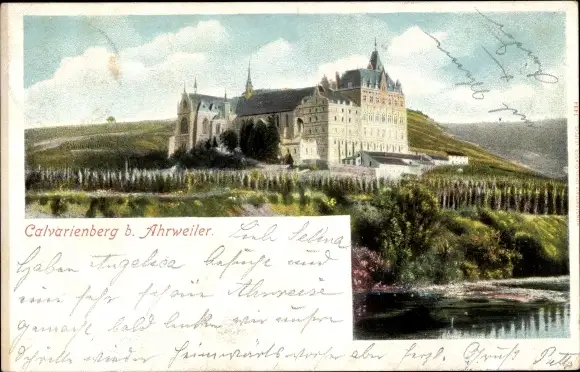 Calvarienberg b. Ahrweiler.
Lieb Selma
Haben Angelica besucht und
eine sehr schöne Ahrreise
gemacht bald lenken wir unsere
Schritte wieder heimwärts vorher aber herzl. Gruß